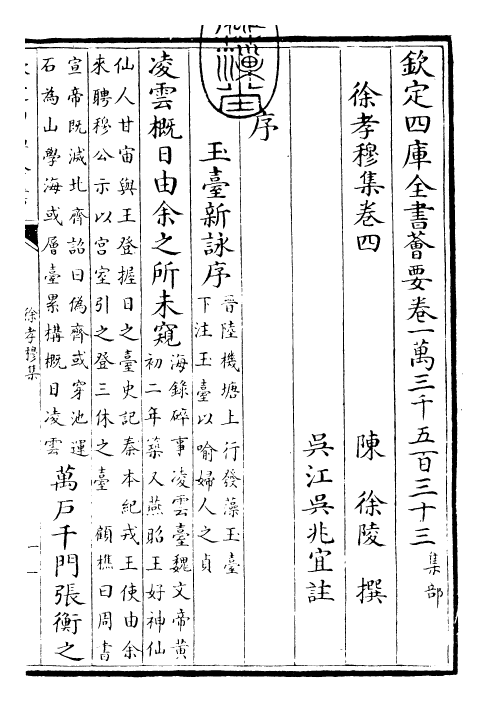 欽定四庫全書薈要卷一萬三千五百三十三 集部
徐孝穆集卷四 陳 徐陵 撰
吳江吳兆宜註
序
玉臺新詠序
晉陸機塘上行發藻玉臺
下注玉臺以喻婦人之貞
凌雲概日由余之所未窺
海錄碎事凌雲臺魏文帝黃
初二年築又燕昭王好神仙
仙人甘宙與王登握日之臺史記秦本紀戎王使由余
來聘穆公示以宮室引之登三休之臺 顧樵曰周書
宣帝既滅北齊詔曰偽齊或穿池運
石為山學海或層臺累構概日凌雲
萬戶千門張衡之
徐孝穆集